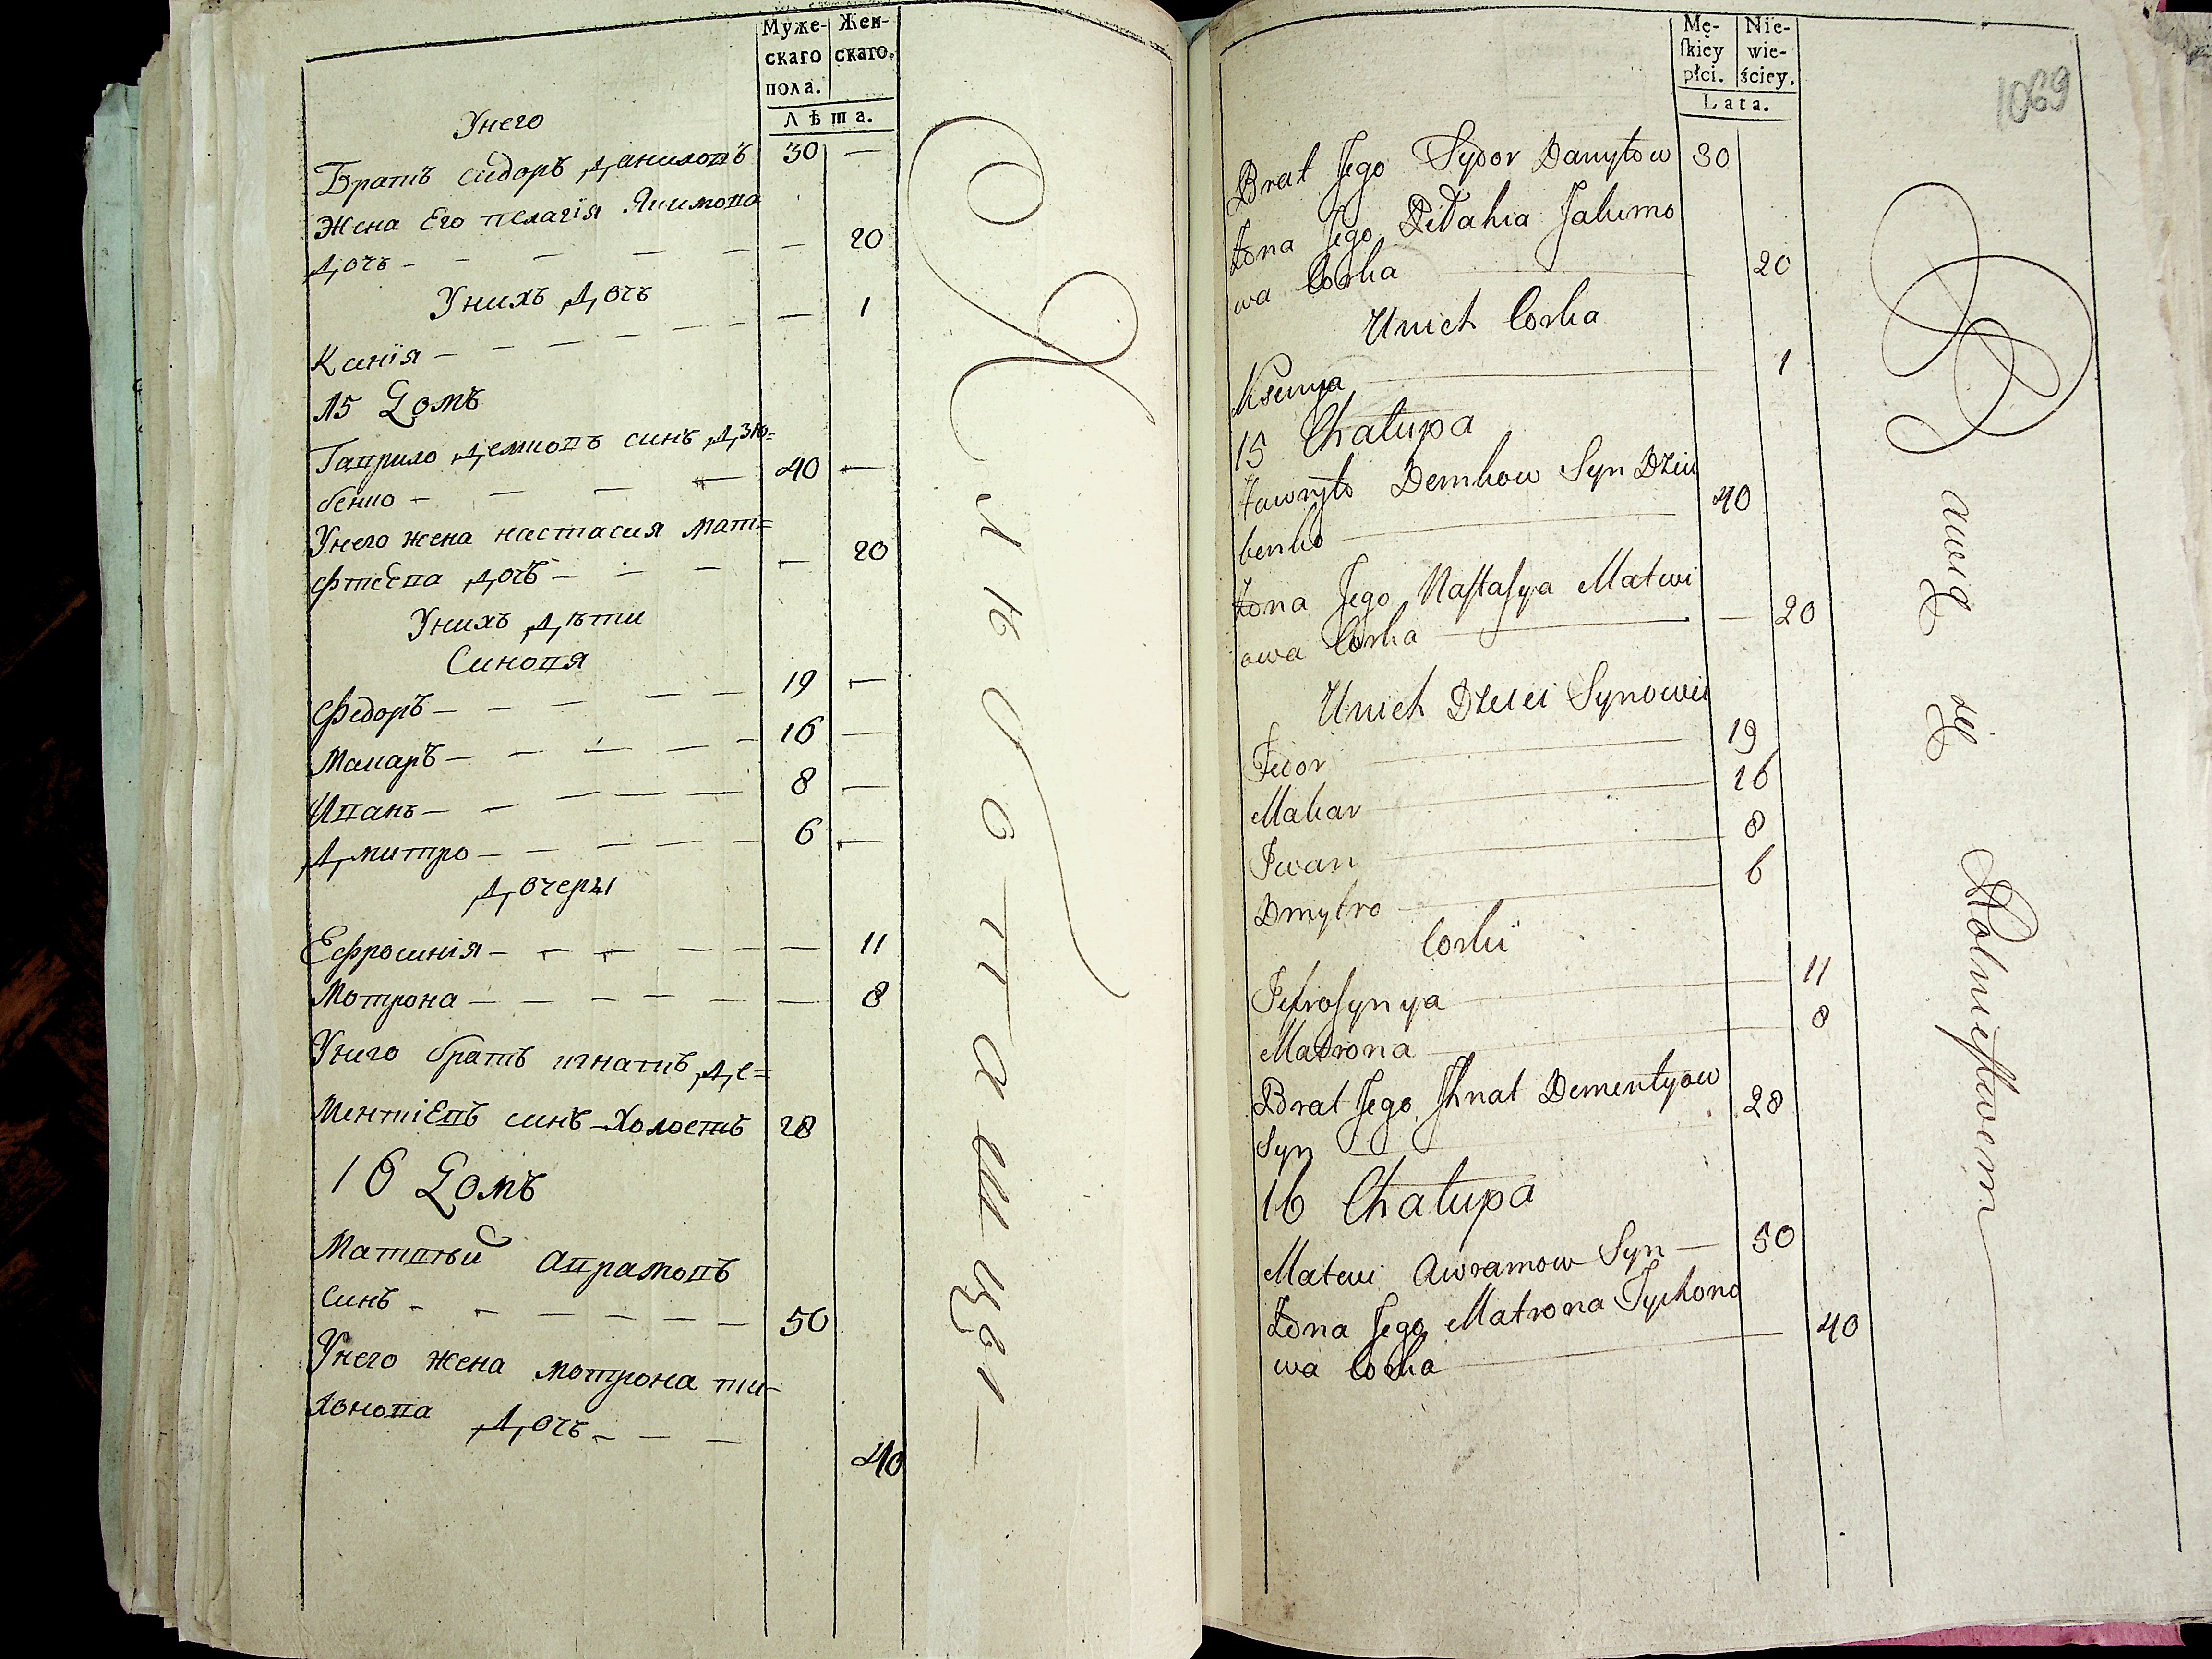 Муже-
скаго
пола.
Жен-
скаго.
Лѣта.
Унего
Братъ сидоръ Даниловъ 30 —
Жена Его пелагія Якимова
Дочъ — — — — — — 20
Унихъ Дочъ
Ксенія — — — — — — — 1
15 Домъ
Гаврило Демковъ синъ Дзю=
бенко — — — — 40 —
Унего жена настасия мат=
фтеева Дочъ — — — — — 20
Унихъ Дѣти
Синовя
Федоръ — — — — — 19 —
Макаръ — — — — — — 16 —
Иванъ — — — — — — 8 —
Дмитро — — — — — — 6 —
Дочеры
Ефросинія — — — — — — 11
Мотрона — — — — — — — 8
Унего братъ игнатъ Де=
ментіевъ синъ — Холостъ 28
16 Домъ
Матвѣй Аврамовъ
синъ — — — — — — 50
Унего жена мотрона ти-
хонова Дочъ — — — 40
Mę-
skiey
płci.
Nie-
wie-
ściey.
Lata.
1069
Brat Jego Sydor Danyłow 30
Żona Jego Pełahia Jakimo
wa Corka 20
Unich Corka
Ksenya 1
15 Chałupa
Hawryło Demkow Syn Dziu
benko 40
Żona Jego Nastasya Matwi
owa Corka — 20
Unich Dzieci Synowie
Fedor 19
Makar 16
Iwan 8
Dmytro 6
Corki
Jefrosynya 11
Matrona 8
Brat Jego Ihnat Dementyow
Syn 28
16 Chałupa
Matwi Awramow Syn — 50
Żona Jego Matrona Tychono
wa Corka 40